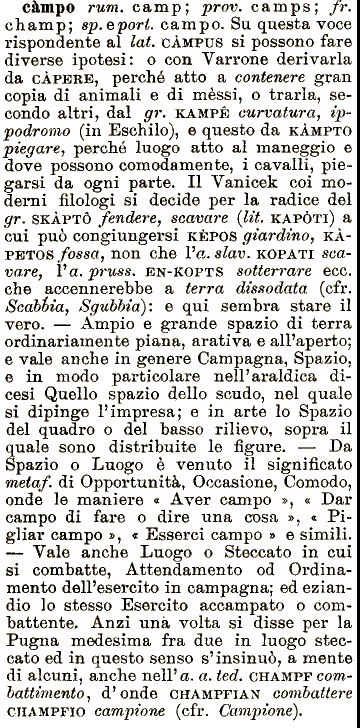 càmpo rum. camp; prov. camps; fr.
champ; sp. e port. campo. Su questa voce
rispondente al lat. CÀMPUS si possono fare
diverse ipotesi: o con Varrone derivarla
da CÀPERE, perché atto a contenere gran
copia di animali e di mèssi, o trarla, se-
condo altri, dal gr. KAMPÊ curvatura, ip-
podromo (in Eschilo), e questo da KÀMPTO
piegare, perché luogo atto al maneggio e
dove possono comodamente, i cavalli, pie-
garsi da ogni parte. Il Vanicek coi mo-
derni filologi si decide per la radice del
gr. SKÀPTÔ fendere, scavare (lit. KAPÓTI) a
cui può congiungersi KÊPOS giardino, KÀ-
PETOS fossa, non che l'a. slav. KOPATI sca-
vare, l'a. pruss. EN-KOPTS sotterrare ecc.
che accennerebbe a terra dissodata (cfr.
Scabbia, Sgubbia): e qui sembra stare il
vero. — Ampio e grande spazio di terra
ordinariamente piana, arativa e all'aperto;
e vale anche in genere Campagna, Spazio,
e in modo particolare nell'araldica di-
cesi Quello spazio dello scudo, nel quale
si dipinge l'impresa; e in arte lo Spazio
del quadro o del basso rilievo, sopra il
quale sono distribuite le figure. — Da
Spazio o Luogo è venuto il significato
metaf. di Opportunità, Occasione, Comodo,
onde le maniere « Aver campo », « Dar
campo di fare o dire una cosa », « Pi-
gliar campo », « Esserci campo » e simili.
— Vale anche Luogo o Steccato in cui
si combatte, Attendamento od Ordina-
mento dell'esercito in campagna; ed ezian-
dio lo stesso Esercito accampato o com-
battente. Anzi una volta si disse per la
Pugna medesima fra due in luogo stec-
cato ed in questo senso s'insinuò, a mente
di alcuni, anche nell'a. a. ted. CHAMPF com-
battimento, d'onde CHAMPFIAN combattere
CHAMPFIO campione (cfr. Campione).